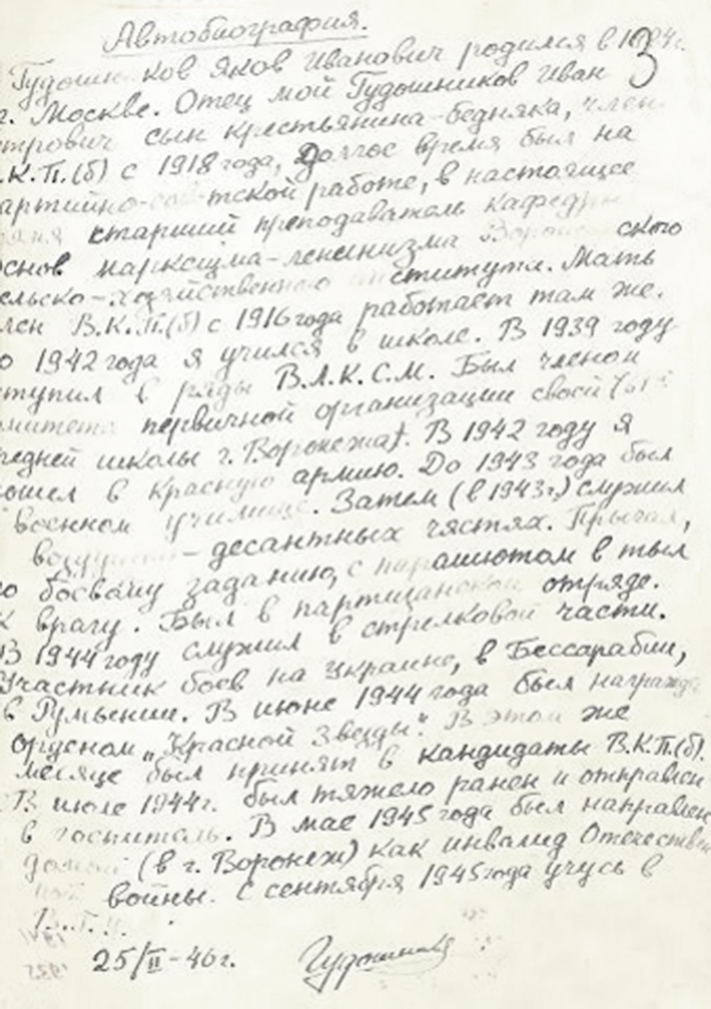 Автобиография.
3
Гудошников Яков Иванович родился в
г. Москве. Отец мой Гудошников Иван
трович сын крестьянина-бедняка, член
.К.П.(б) с 1918 года, Долгое время был на
артийно-советской работе, в настоящее
старший преподаватель кафедры
основ марксизма-ленинизма ского
ельско-хозяйственного института. Мать
лен В.К.П.(б) с 1916 года работает там же.
о 1942 года я учился в школе. В 1939 году
ступил в ряды В.Л.К.С.М. Был членом
омитета первичной организации своей
редней школы г. Воронежа). В 1942 году я
ошел в Красную армию. До 1943 года был
военном училище. Затем (в 1943г.) служил
воздушно-десантных частях. Прыгал,
о боевому заданию, с парашютом в тыл
к врагу. Был в партизанском отряде.
В 1944 году служил в стрелковой части.
Участник боев на Украине, в Бессарабии,
в Румынии. В июне 1944 года был награжд
орденом „Красной Звезды". В этом же
месяце был принят в кандидаты В.К.П.(б).
В июле 1944г. был тяжело ранен и отправлен
в госпиталь. В мае 1945 года был направлен
домой (в г. Воронеж) как инвалид Отечествен
ной войны. С сентября 1945 года учусь в
25/II-46г. Гудошников